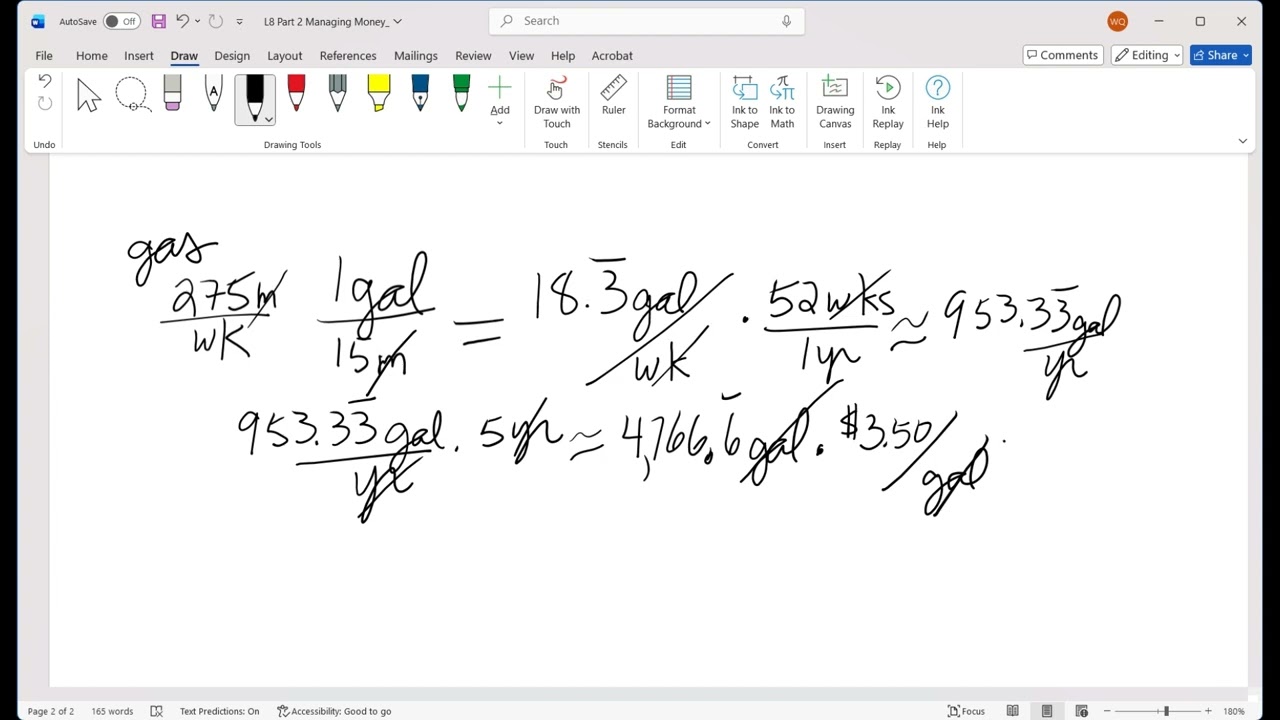 AutoSave Off L8 Part 2 Managing Money_ Search WQ
File Home Insert Draw Design Layout References Mailings Review View Help Acrobat Comments Editing Share
Undo Drawing Tools Add Draw with Touch Touch Ruler Stencils Format Background Edit Ink to Shape Ink to Math Convert Drawing Canvas Insert Ink Replay Replay Ink Help Help
gas
275m/wk 1gal/15m = 18.3̅gal/wk · 52wks/1yr ≈ 953.33̅gal/yr
953.33̅gal/yr · 5yr ≈ 4,766.6̅gal · $3.50/gal
Page 2 of 2 165 words Text Predictions: On Accessibility: Good to go Focus 180%